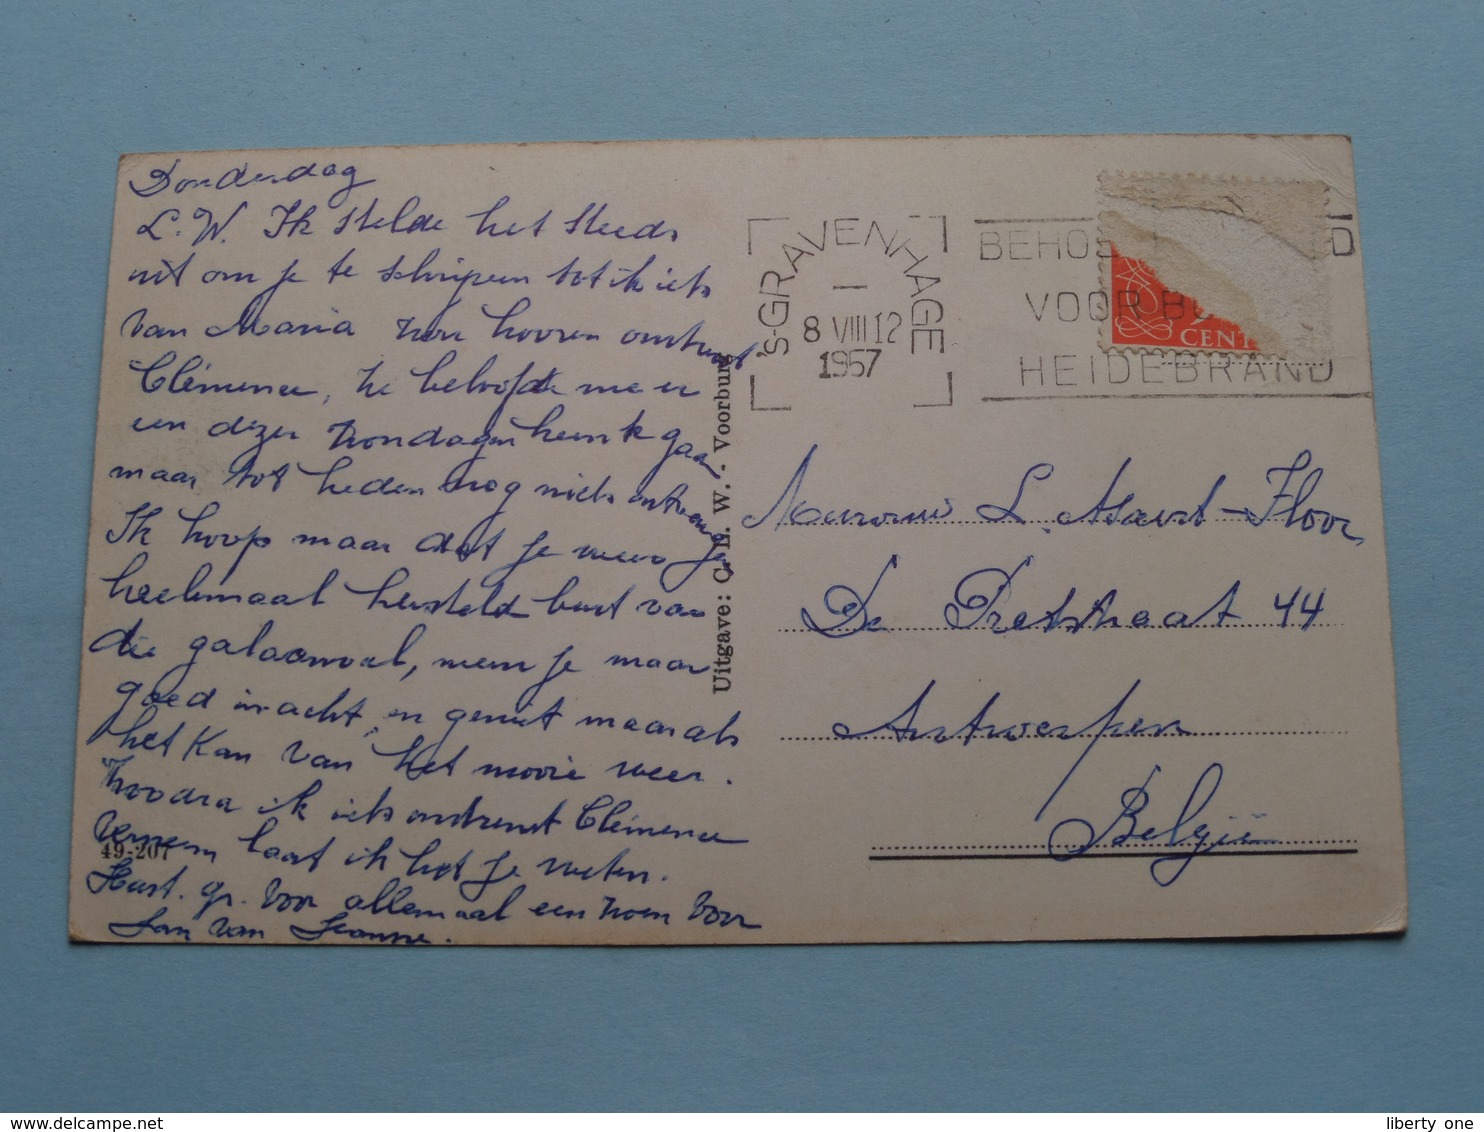 Donderdag
L. W. Ik stelde het steeds
uit om je te schrijven tot ik iets
van Maria zou hooren omtrent
Clémence, ze beloofde me er
een dezer zondagen heen te gaan
maar tot heden nog niets ontvangen
Ik hoop maar dat je weer
heelemaal hersteld bent van
die galaanval, neem je maar
goed in acht, en geniet maar als
het kan van het mooie weer.
Zoodra ik iets omtrent Clémence
verneem laat ik het je weten.
Hart. gr. voor allemaal een zoen voor
Jan van Jeanne.
49-207
Uitgave: C. L. W. - Voorburg
's-GRAVENHAGE
8 VIII 12
1957
BEHO D
VOOR B
HEIDEBRAND
CENT
Mevrouw L. -Floor
De Pretstraat 44
Antwerpen
België
liberty one
delcampe.net